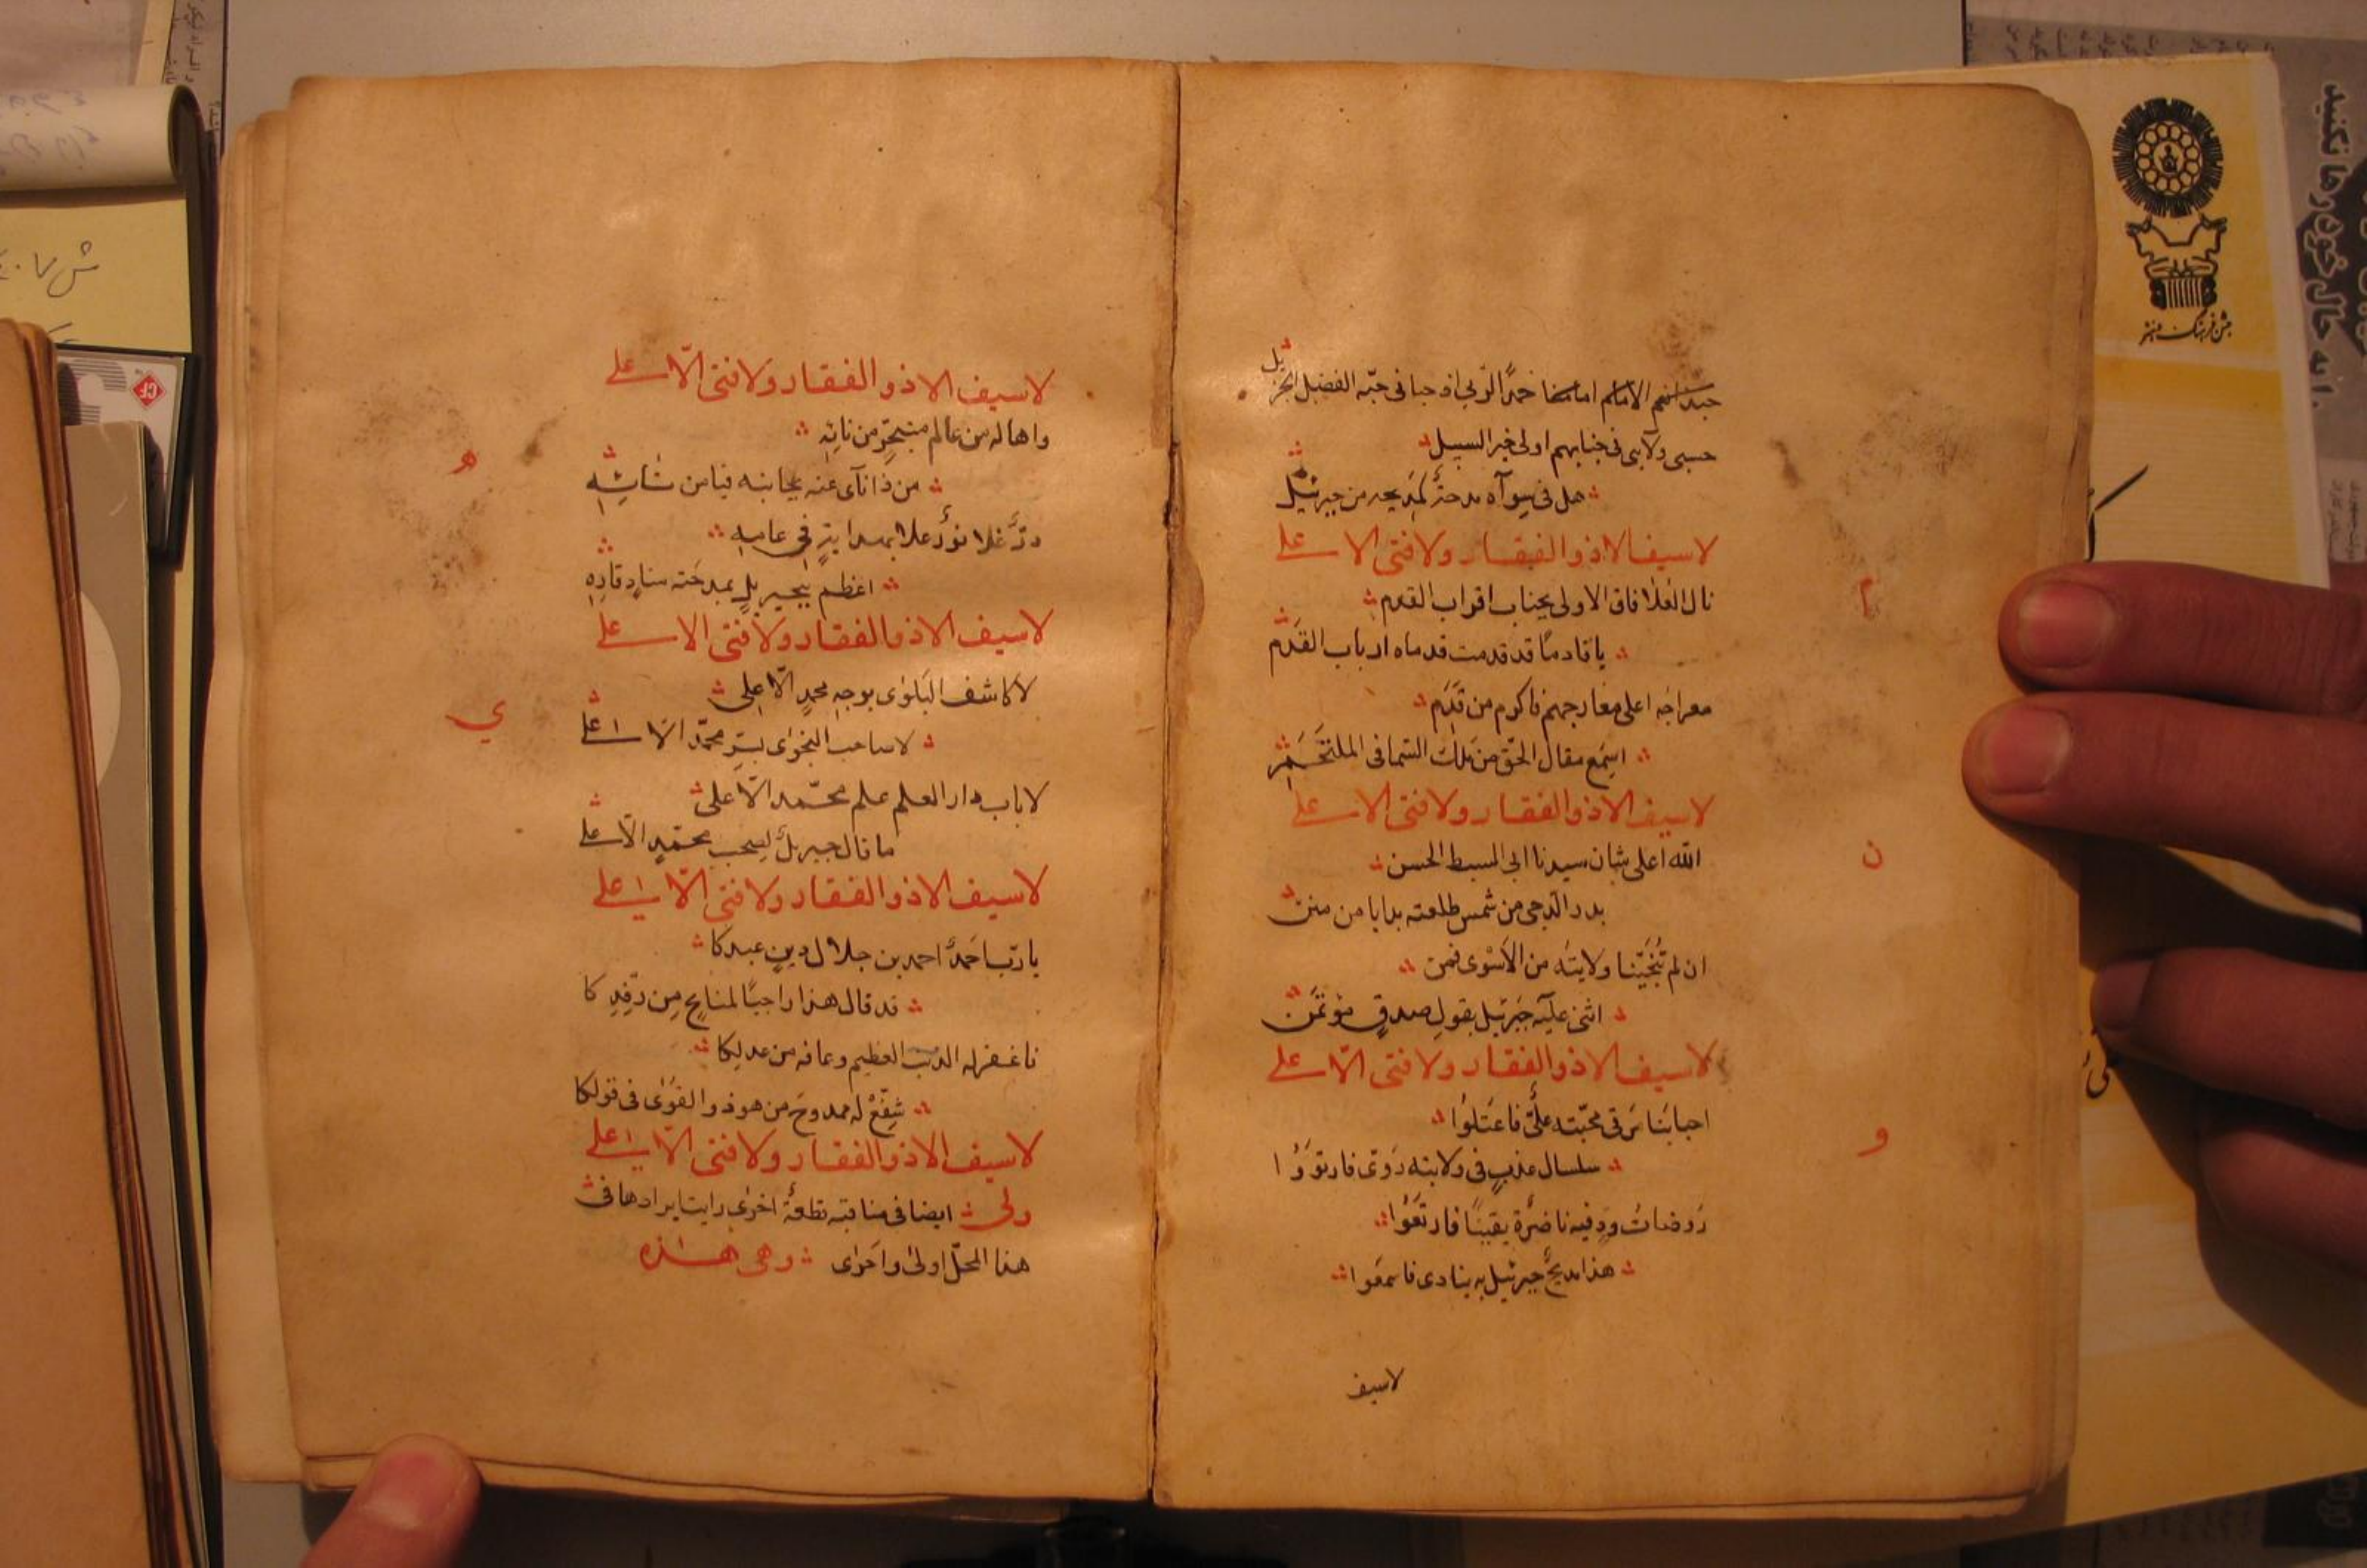 امامنا حمدًا لذی فی حبه الفضل الجز
یل
حسبی ولایی فی جنابهم اولی خیر السبیل
هل فی سواه مدحة کمدیحه من جبرئیل
لا سیف الا ذو الفقار ولا فتی الا علی
م
نال العلا فاق الاولی بجناب اقراب القدم
یا قادمًا قد قدمت قدماه ارباب القدم
معراجه اعلی معارجهم فاکرم من قدم
اسمع مقال الحق من ملك السما فی الملتحم
لا سیف الا ذو الفقار ولا فتی الا علی
ن
الله اعلی شان سیدنا ابی السبط الحسن
بدر الدجی من شمس طلعته بدایا من منن
ان لم تنجینا ولایته من الاسوی فمن
اثنی علیه جبرئیل بقول صدق مؤتمن
لا سیف الا ذو الفقار ولا فتی الّا علی
و
احبابنا محبّته علی فاعتلوا
سلسال عذب فی ولایته روی فارتووا
روضات ود فیه ناضرة یقینًا فارتعوا
هذا مدیح جبرئیل به ینادی فاسمعوا
لا سیف
لا سیف الا ذو الفقار ولا فتی الّا علی
ه
واها له من عالم متبحّر من نابه
من ذا نآی عنه بجانبه فیا من شانئه
درّ غلا نورٌ علا بهدایة فی عامه
اعظم بجبریل بمدحته
لا سیف الا ذو الفقار ولا فتی الا علی
ي
لا کاشف البلوی بوجه محمدٍ الّا علی
لا صاحب النجوی بسرّ محمّد الّا علی
لا باب دار العلم علم محمّد الّا علی
ما قال جبریل لصحب محمّدٍ الّا علی
لا سیف الا ذو الفقار ولا فتی الّا علی
یا ربّ احمد احمد بن جلال دین عبدکا
قد قال هذا راجیًا لمنایح من رفدکا
فاغفر له الذنب العظیم وعافه من عدلکا
شفّع له ممدوح من هو ذو القوی فی قولکا
لا سیف الا ذو الفقار ولا فتی الّا علی
ولی ایضا فی مناقبه قطعة اخری رایت ایرادها فی
هذا المحلّ اولی واحری وهی هذه
جشن فرهنگ و هنر